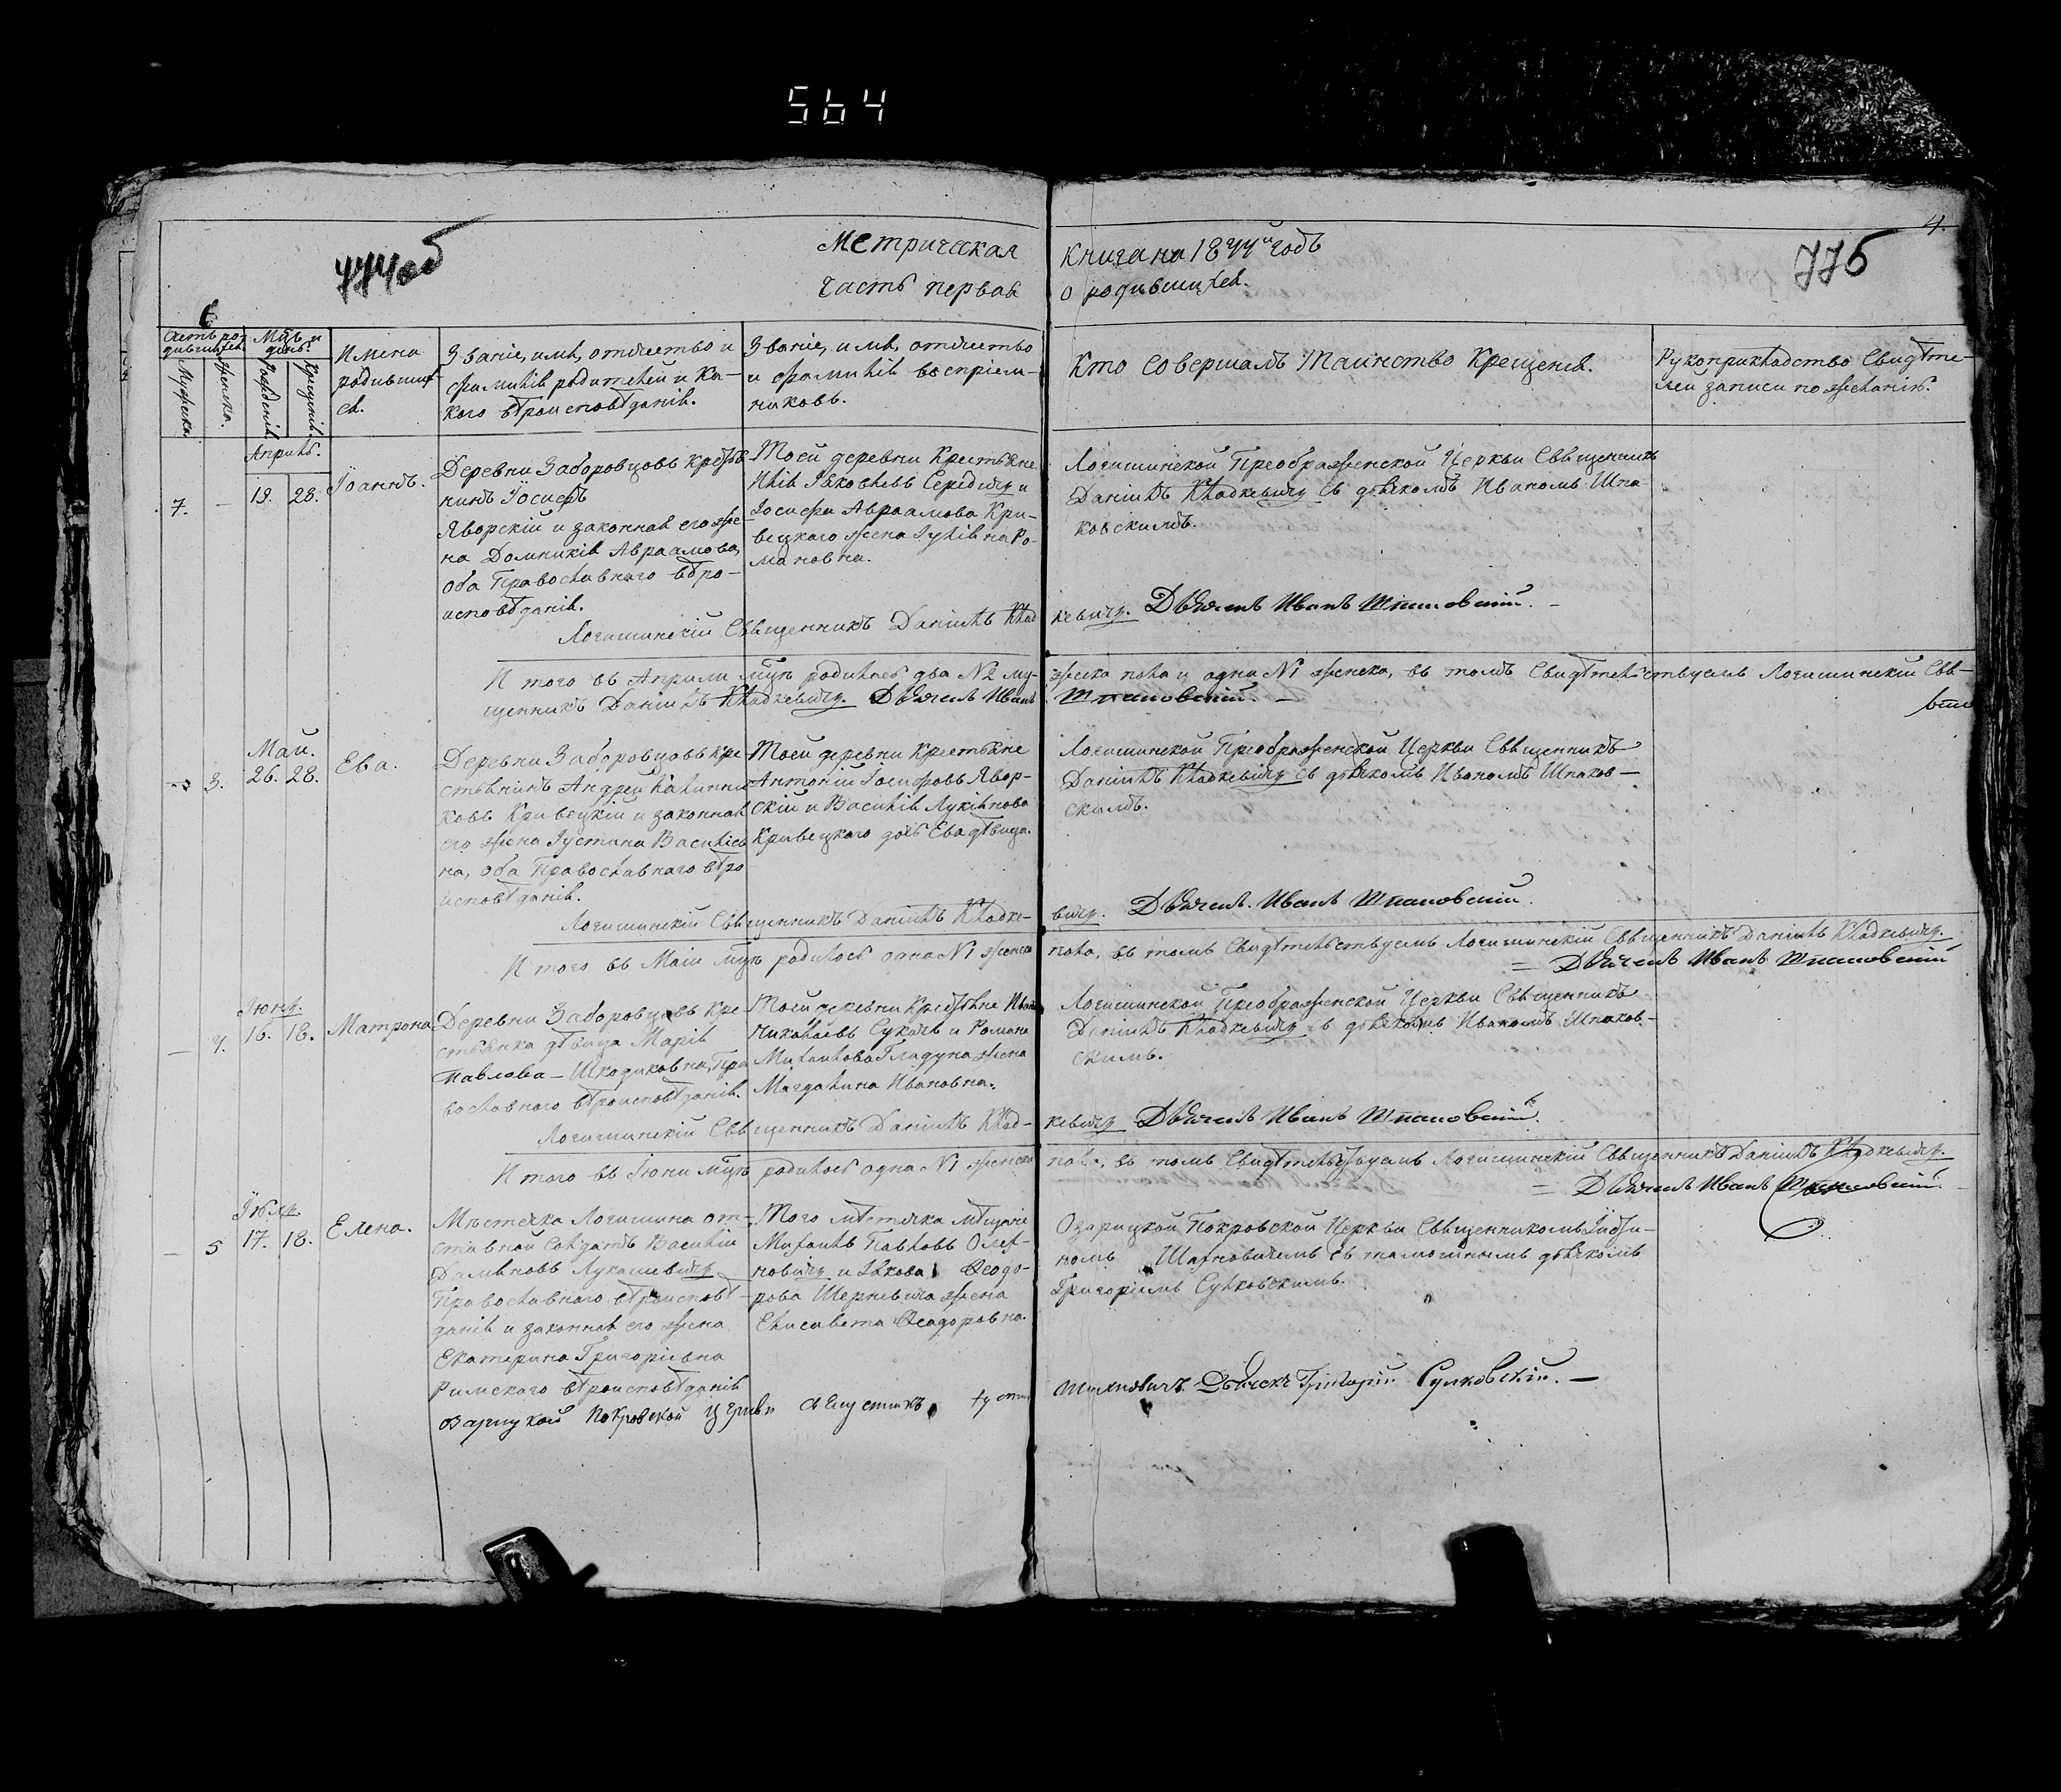 564
4.
774об
775
Метрическая книга на 1844й годъ
Часть первая о родившихся.
6
Счетъ родившихся.
Мужеска.
Женска.
Мцъ и день.
Рожденія.
Крещенія.
Имена
родивших-
ся.
Званіе, имя, отчество и
фамилія родителей и ка-
кого вѣроисповѣданія.
Званіе, имя, отчество
и фамилія воспріем-
никовъ.
Кто совершалъ Таинство Крещенія.
Рукоприкладство свидѣте-
лей записи по желанію.
Апрѣль.
7.
-
19. 28.
Іоаннъ.
Деревни Заборовцовъ кресть-
нинъ Іосифъ
Яворскій и законная его же-
на Домникія Авраамова,
оба Православнаго вѣро-
исповѣданія.
Тоей деревни Крестьяне
Илія Яковлевъ Середичъ и
Іосифа Авраамова Кри-
вецкаго жена Іуліяна Ро-
мановна.
Логишинской Преображенской Церкви Священникъ
Даніилъ Кладкевичъ съ дьячкомъ Иваномъ Шпа-
ковскимъ.
Логишинскій Священникъ Даніилъ Клад
кевичъ. Дьячекъ Иванъ Шпаковскій. -
И того въ Апрѣли мцѣ родилось два N2 му-
жеска пола и одна N1 женска, въ томъ свидѣтельствуемъ Логишинскій Свя-
щенникъ Даніилъ Кладкевичъ. Дьячекъ Иванъ
Шпаковскій. -
Май.
3.
26. 28.
Ева.
Деревни Заборовцовъ кре-
стьянинъ Андрей Калинни-
ковъ Кривецкій и законная
его жена Іустина Васильев
на, оба Православнаго вѣро
исповѣданія.
Тоей деревни Крестьяне
Антоній Іосифовъ Явор-
скій и Василія Лукіянова
Кривецкаго дочь Ева дѣвица.
Логишинской Преображенской Церкви Священникъ
Даніилъ Кладкевичъ съ дьячкомъ Иваномъ Шпаков-
скимъ.
Логишинскій Священникъ Даніилъ Кладке-
вичъ. Дьячекъ Иванъ Шпаковскій.
И того въ Маіи мцѣ родилось одна N1 женска
пола, въ томъ свидѣтельствуемъ Логишинскій Священникъ Даніилъ Кладкевичъ.
= Дьячекъ Иванъ Шпаковскій
Іюнь.
- 4.
16. 18.
Матрона
Деревни Заборовцовъ Кре-
стьянка дѣвица Марія
Павлова - Шкодиковна, Пра
вославнаго вѣроисповѣданія.
Тоей деревни Крестьяне Иванъ
Николаевъ Сукачъ и Романа
Михаилова Гладуна жена
Магдалина Ивановна.
Логишинской Преображенской Церкви Священникъ
Даніилъ Кладкевичъ съ дьячкомъ Иваномъ Шпаков-
скимъ.
Логишинскій Священникъ Даніилъ Клад-
кевичъ Дьячекъ Иванъ Шпаковскій.
И того въ Іюни мцѣ родилось одна N1 женска
пола, въ томъ свидѣтельствуемъ Логишинскій Священникъ Даніилъ Кладкевичъ.
= Дьячекъ Иванъ Шпаковскій.
Іюль.
- 5
17. 18.
Елена.
Мѣстечка Логишина от-
ставной Солдатъ Василій
Даміановъ Лукашевичъ
Православнаго вѣроисповѣ-
данія и законная его жена
Екатерина Григоріевна
Римскаго вѣроисповѣданія
Того мѣстечка мѣщане
Михаилъ Павловъ Олех-
новичъ и Якова Феодо-
рова Шерневича жена
Елисавета Феодоровна.
Озарицкой Покровской Церкви Священникомъ
номъ Шахновичемъ съ тамошнымъ дьячкомъ
Григоріемъ Сулковскимъ.
Озарицкой Покровской Церкви
Шахновичъ Дьячекъ Григорій Сулковскій. -